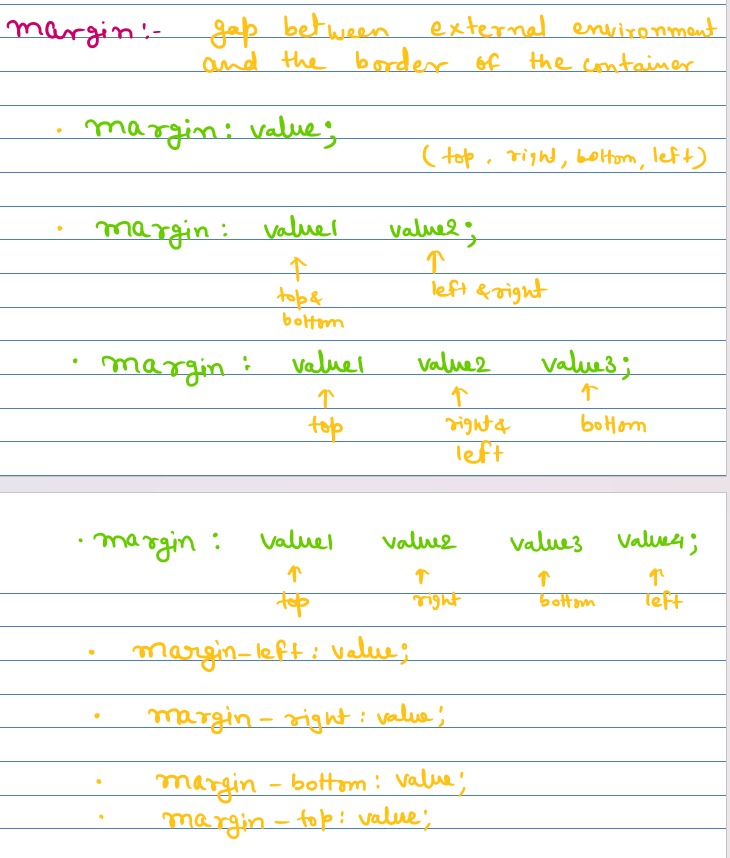 margin:- gap between external environment
and the border of the container
• margin: value;
(top, right, bottom, left)
• margin: value1 value2;
↑ ↑
top & left & right
bottom
• margin: value1 value2 value3;
↑ ↑ ↑
top right & bottom
left
• margin: value1 value2 value3 value4;
↑ ↑ ↑ ↑
top right bottom left
• margin-left: value;
• margin-right: value;
• margin-bottom: value;
• margin-top: value;